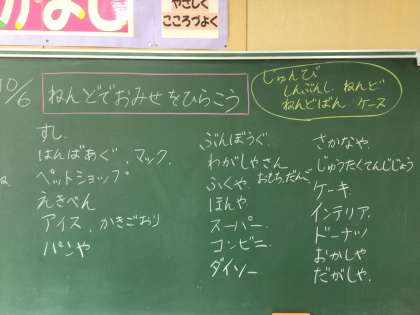 なかよし
やさしく
こころづよく
10/6
ねんどでおみせをひらこう
じゅんび
しんぶんし、ねんど
ねんどばん、ケース
すし
はんばあぐ、マック、
ペットショップ
えきべん
アイス、かきごおり
パンや
ぶんぼうぐ、
わがしやさん
おもち、だんご
ふくや
ほんや
スーパー、
コンビニ
ダイソー
さかなや、
じゅうたくてんじじょう
ケーキ
インテリア、
ドーナツ
おかしや
だがしや、